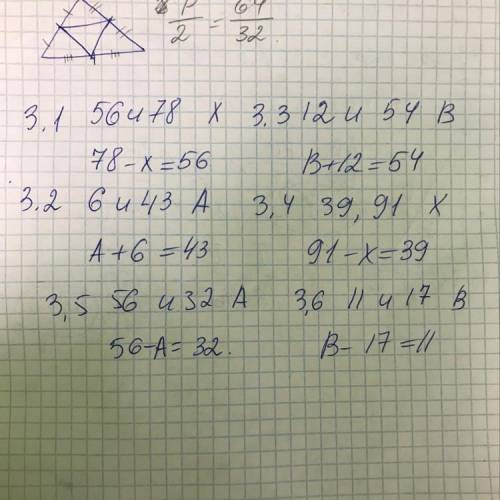 P/2 = 64/32
3.1 56 и 78 X
78-x=56
3.3 12 и 54 B
B+12=54
3.2 6 и 43 A
A+6=43
3,4 39, 91 X
91-x=39
3,5 56 и 32 A
56-A=32.
3,6 11 и 17 B
B-17=11